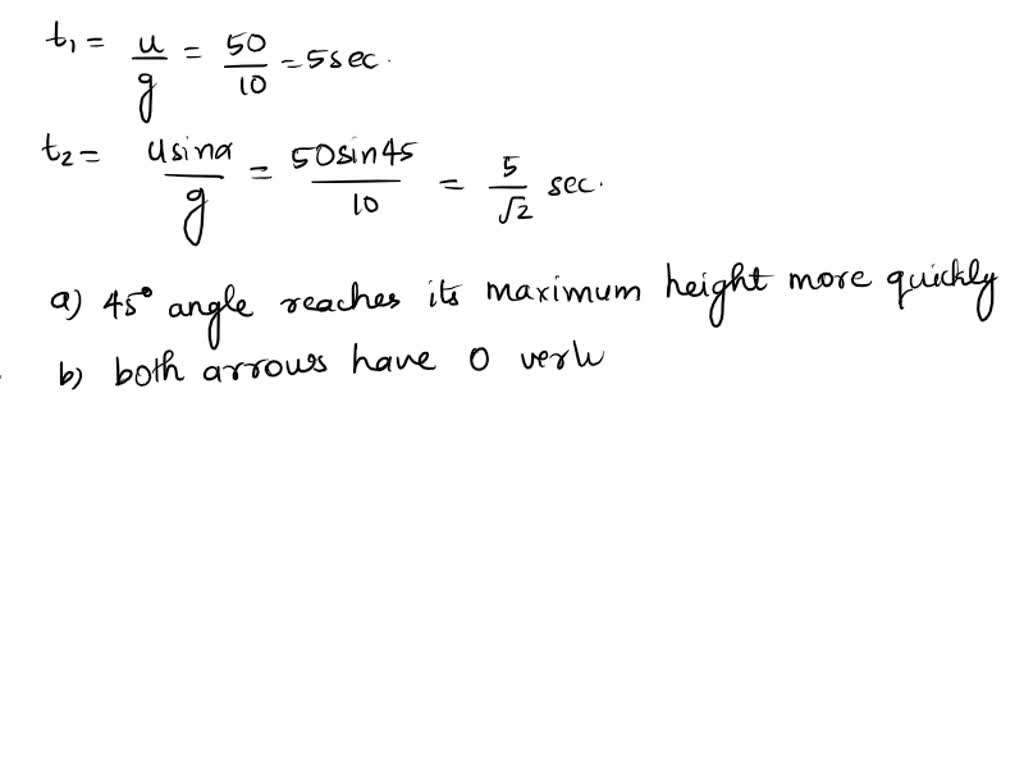 t₁ = u/g = 50/10 = 5 sec.
t₂ = u sinα/g = 50 sin 45/10 = 5/√2 sec.
a) 45° angle reaches its maximum height more quickly
b) both arrows have 0